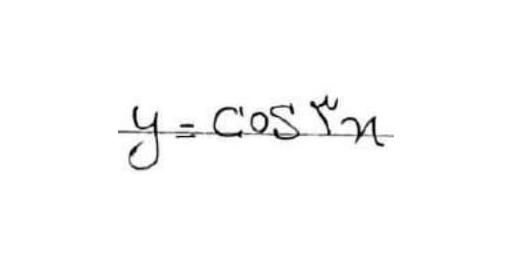 y = cos ۳x